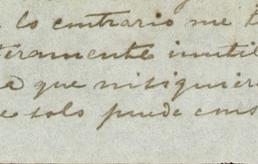 lo contrario me
eramente inutil
que nisiquier
solo puede cons